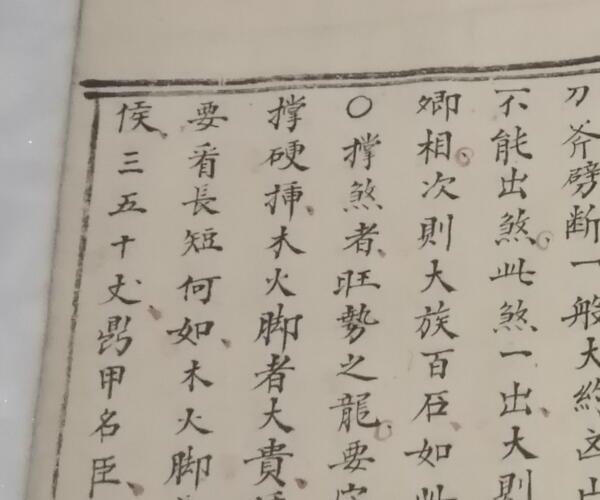 刀斧劈断一般大約
不能出煞此煞一出大則
卿相次則大族百石如此
〇撑煞者旺勢之龍要
撑硬挿木火脚者大貴
要看長短何如木火脚
侯三五十丈 甲名臣